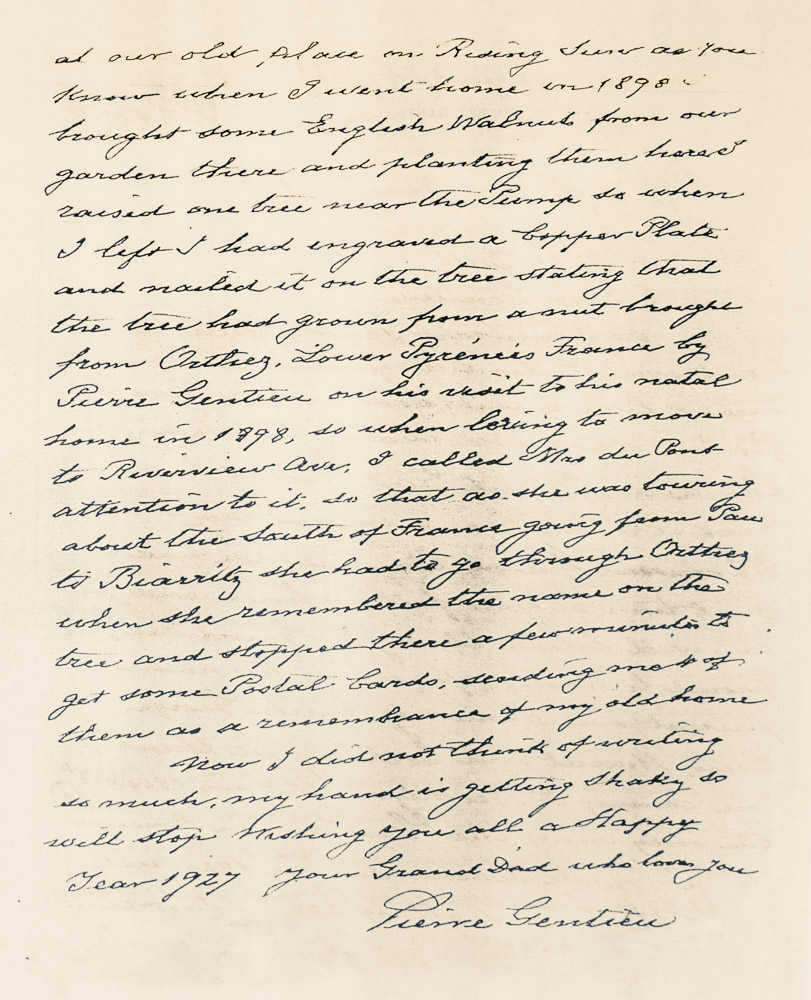 at our old place on Rising Sun as you
know when I went home in 1898 i
brought some English Walnuts from our
garden there and planting them here I
raised one tree near the Pump so when
I left I had engraved a Copper Plate
and nailed it on the tree stating that
the tree had grown from a nut brought
from Orthez, Lower Pyrénées France by
Pierre Gentieu on his visit to his natal
home in 1898, so when leaving to move
to Riverview Ave, I called Mrs du Pont
attention to it, so that as she was touring
about the South of France going from Pau
to Biarritz she had to go through Orthez
when she remembered the name on the
tree and stopped there a few minutes to
get some Postal Cards, sending me of
them as a remembrance of my old home
Now I did not think of writing
so much, my hand is getting shaky so
will stop Wishing you all a Happy
Year 1927 your Grand Dad who loves you
Pierre Gentieu